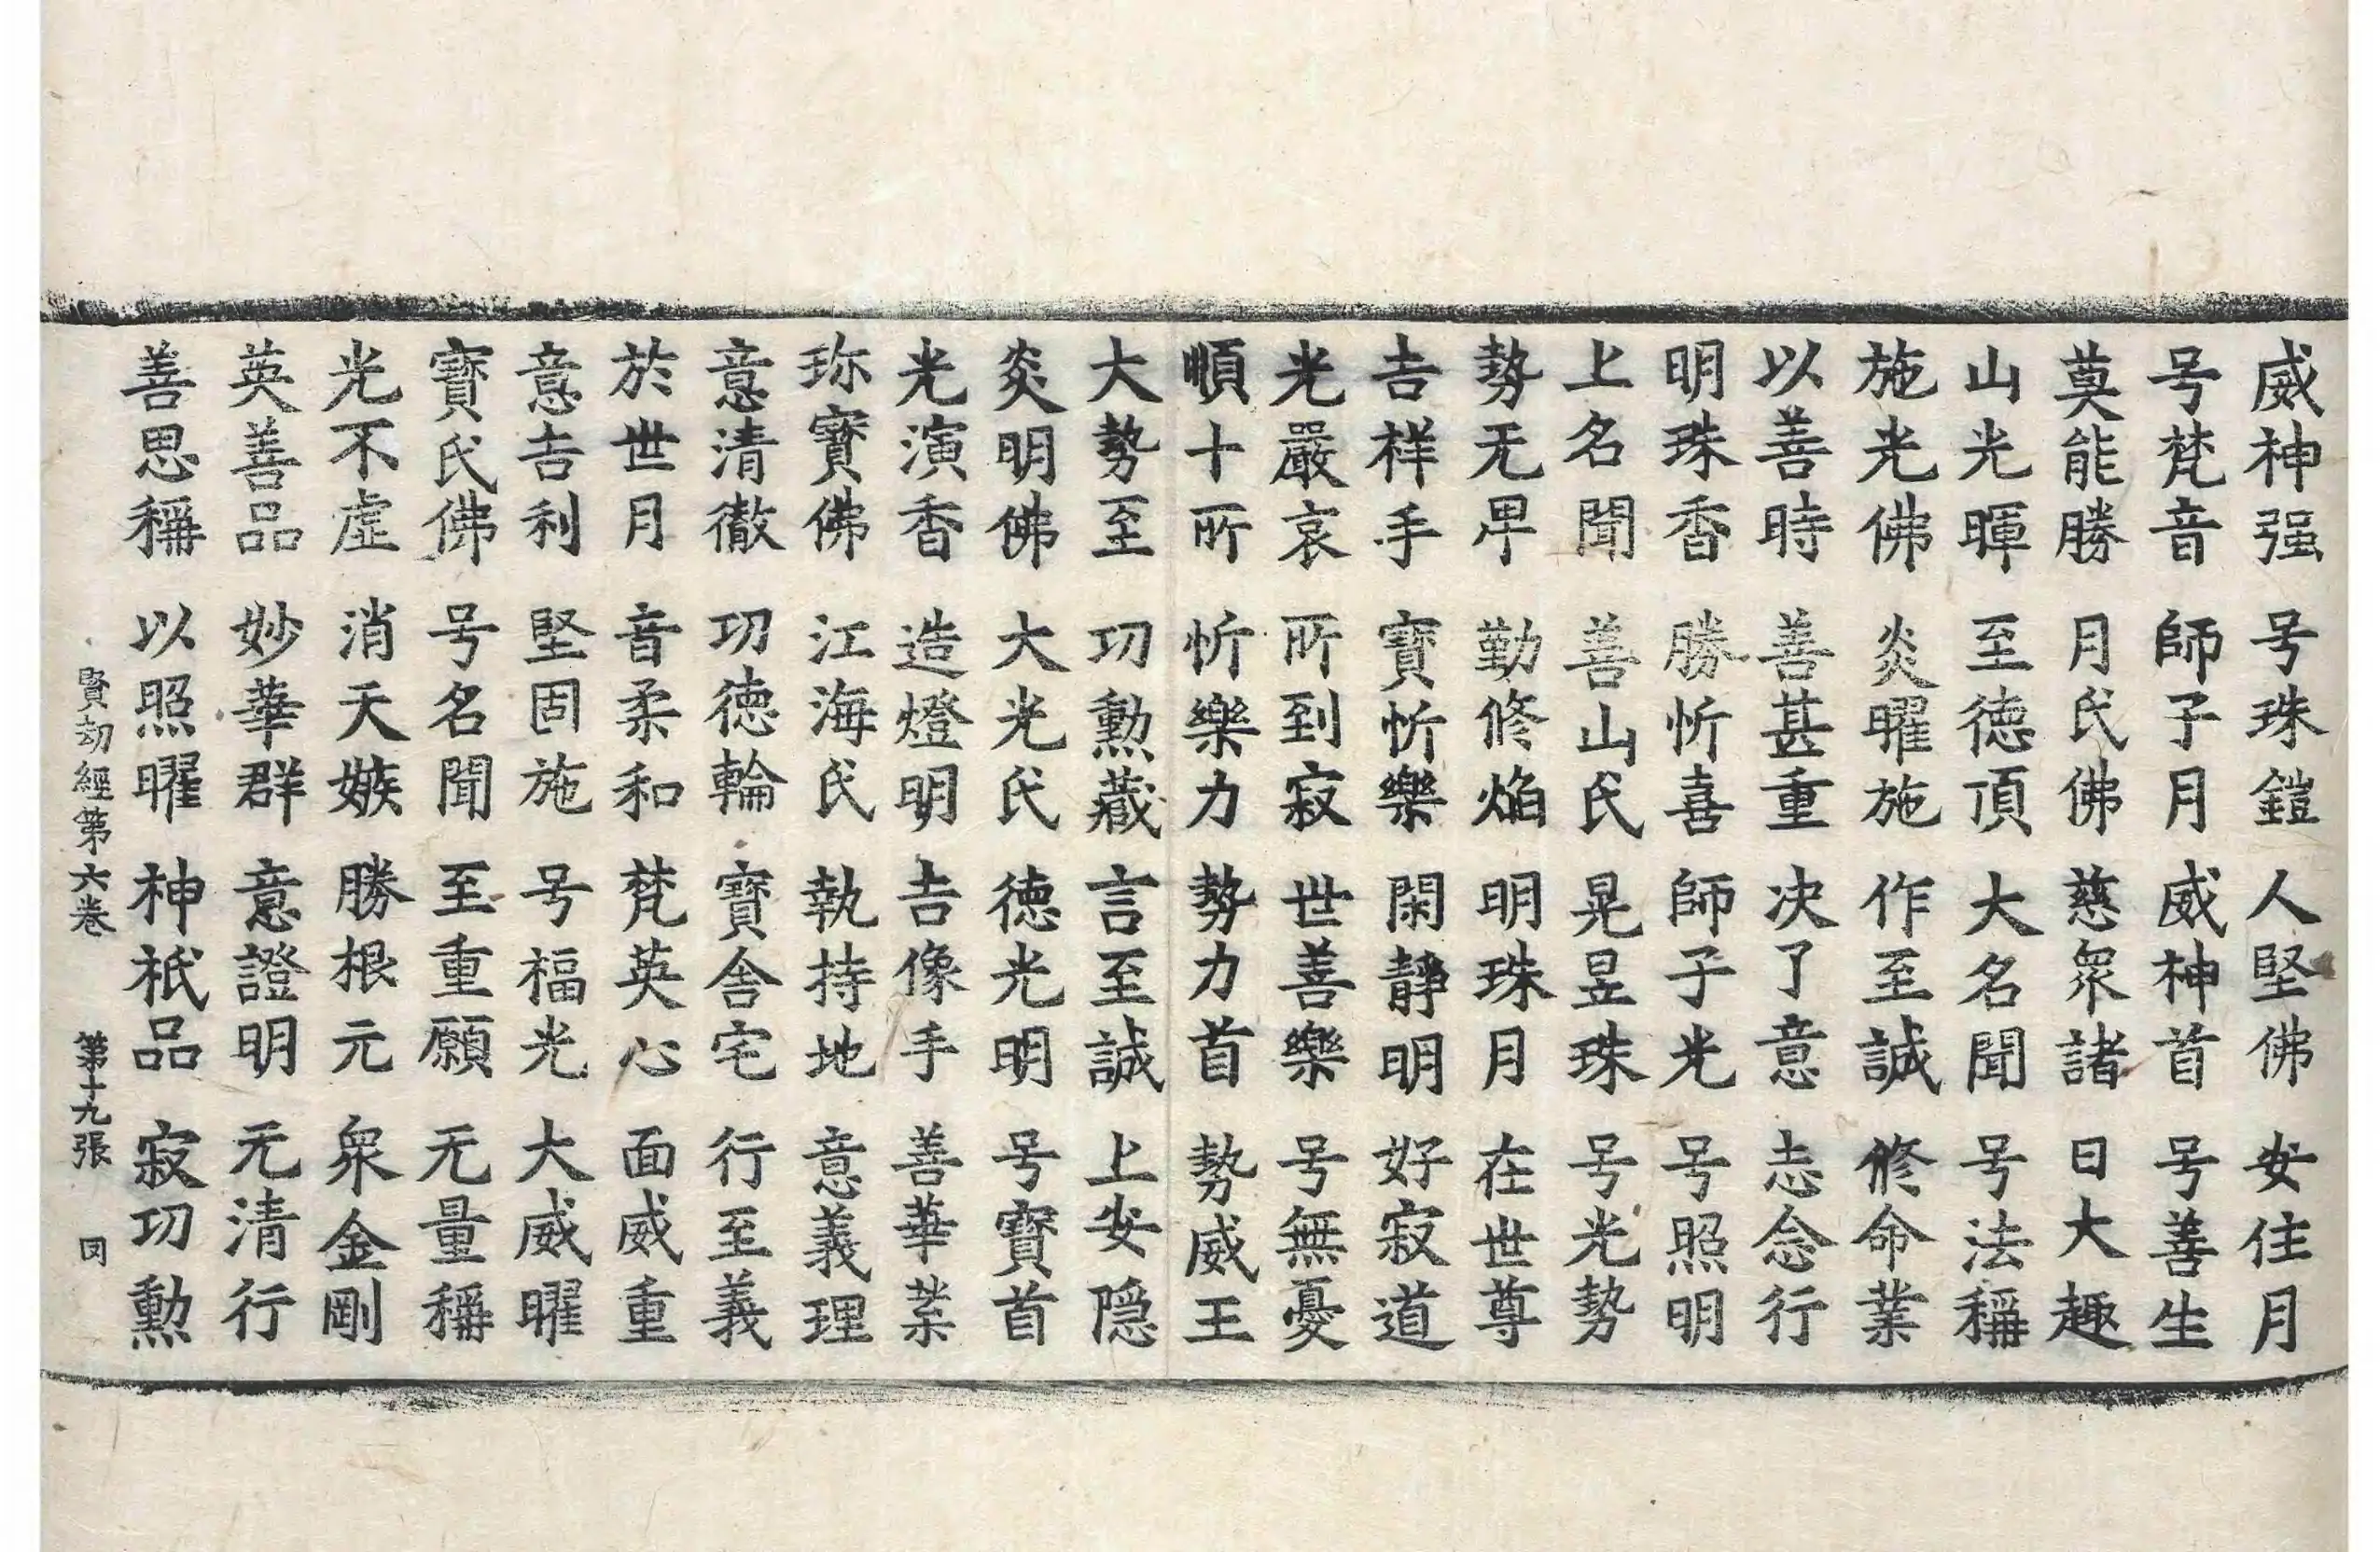 威神强 号珠鎧 人堅佛 安住月
号梵音 師子月 威神首 号善生
莫能勝 月氏佛 慈衆諸 日大趣
山光暉 至德頂 大名聞 号法稱
施光佛 炎曜施 作至誠 修命業
以善時 善甚重 决了意 志念行
明珠香 勝忻喜 師子光 号照明
上名聞 善山氏 晃昱珠 号光勢
勢无卑 勤修焔 明珠月 在世尊
吉祥手 寶忻樂 閑靜明 好寂道
光嚴哀 所到寂 世善樂 号無憂
順十所 忻樂力 勢力首 勢威王
大勢至 功勲蔵 言至誠 上安隠
炎明佛 大光氏 德光明 号寶首
光演香 造燈明 吉像手 善華業
珎寶佛 江海氏 執持地 意義理
意清徹 功德輪 寶舎宅 行至義
於世月 音柔和 梵英心 面威重
意吉利 堅固施 号福光 大威曜
寶氏佛 号名聞 至重願 无量稱
光不虛 消天嫉 勝根元 衆金剛
英善品 妙華群 意證明 无清行
善思稱 以照曜 神祇品 寂功勲
賢劫經第六卷 第十九張